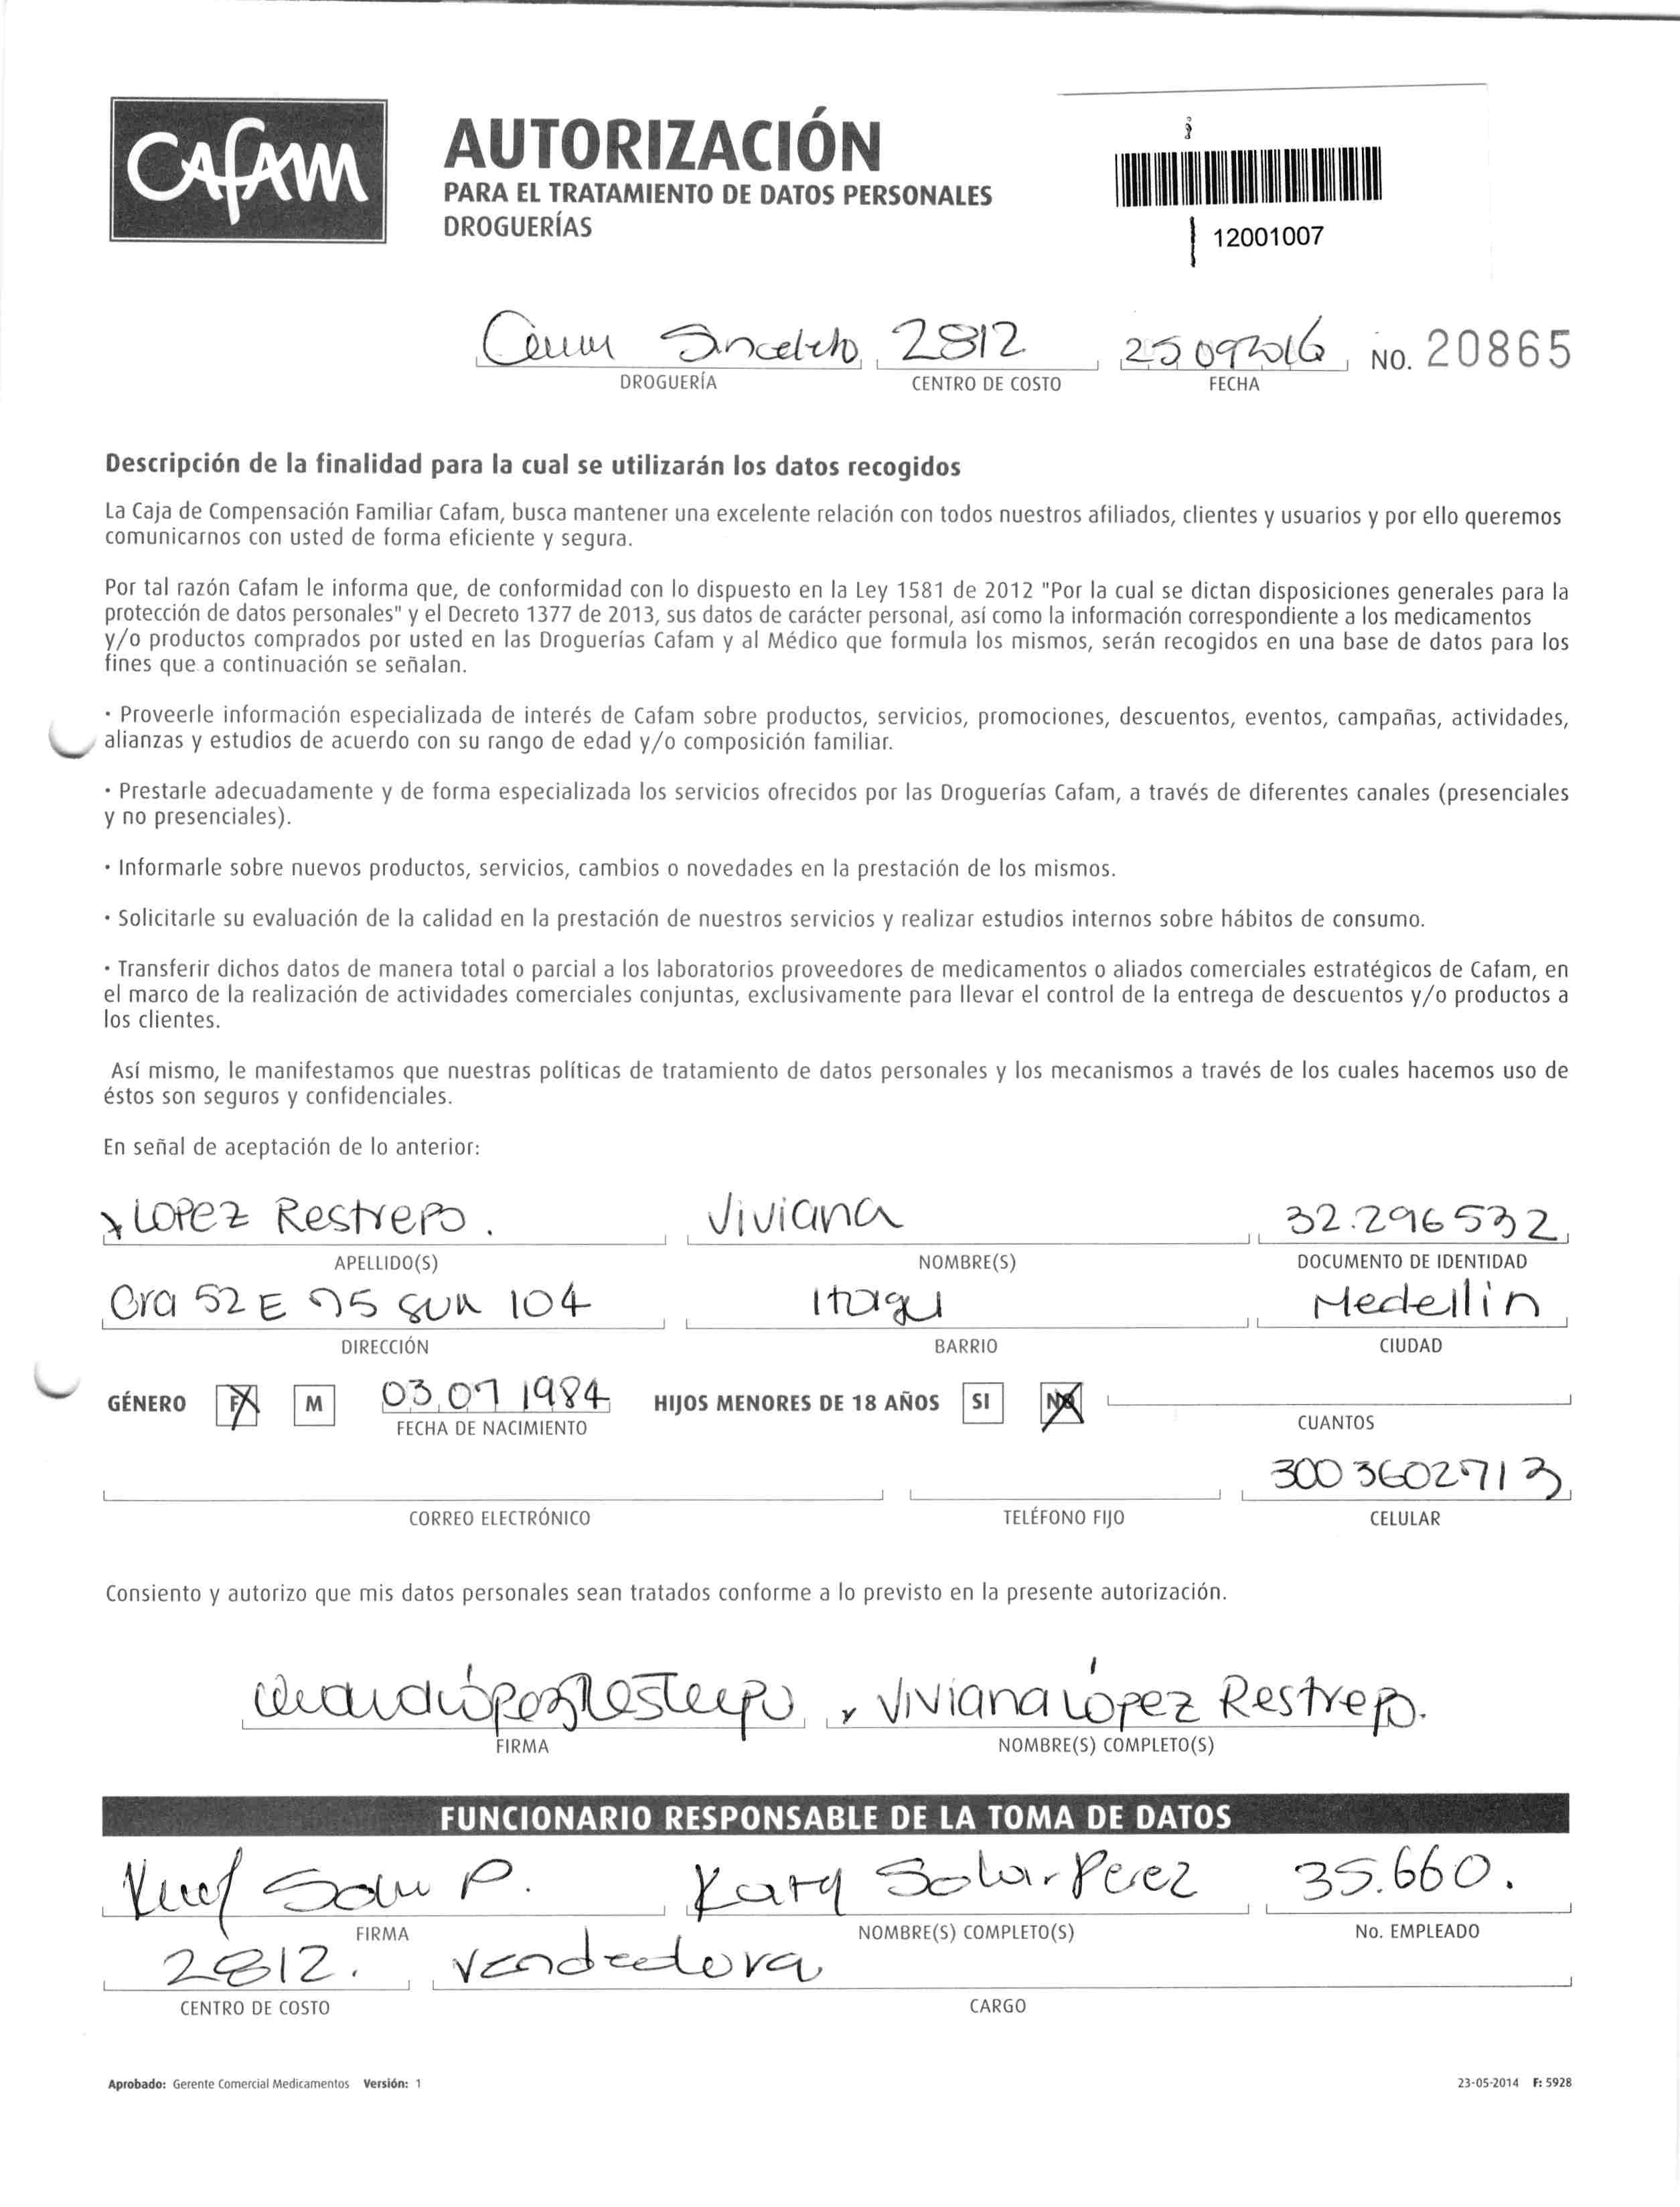 CAFAM
AUTORIZACIÓN
PARA EL TRATAMIENTO DE DATOS PERSONALES
DROGUERÍAS
12001007
Sincelejo 2812 25 09 2016 NO. 20865
DROGUERÍA CENTRO DE COSTO FECHA
Descripción de la finalidad para la cual se utilizarán los datos recogidos
La Caja de Compensación Familiar Cafam, busca mantener una excelente relación con todos nuestros afiliados, clientes y usuarios y por ello queremos
comunicarnos con usted de forma eficiente y segura.
Por tal razón Cafam le informa que, de conformidad con lo dispuesto en la Ley 1581 de 2012 "Por la cual se dictan disposiciones generales para la
protección de datos personales" y el Decreto 1377 de 2013, sus datos de carácter personal, así como la información correspondiente a los medicamentos
y/o productos comprados por usted en las Droguerías Cafam y al Médico que formula los mismos, serán recogidos en una base de datos para los
fines que a continuación se señalan.
· Proveerle información especializada de interés de Cafam sobre productos, servicios, promociones, descuentos, eventos, campañas, actividades,
alianzas y estudios de acuerdo con su rango de edad y/o composición familiar.
· Prestarle adecuadamente y de forma especializada los servicios ofrecidos por las Droguerías Cafam, a través de diferentes canales (presenciales
y no presenciales).
· Informarle sobre nuevos productos, servicios, cambios o novedades en la prestación de los mismos.
· Solicitarle su evaluación de la calidad en la prestación de nuestros servicios y realizar estudios internos sobre hábitos de consumo.
· Transferir dichos datos de manera total o parcial a los laboratorios proveedores de medicamentos o aliados comerciales estratégicos de Cafam, en
el marco de la realización de actividades comerciales conjuntas, exclusivamente para llevar el control de la entrega de descuentos y/o productos a
los clientes.
Así mismo, le manifestamos que nuestras políticas de tratamiento de datos personales y los mecanismos a través de los cuales hacemos uso de
éstos son seguros y confidenciales.
En señal de aceptación de lo anterior:
Lopez Restrepo. Viviana 32.296532
APELLIDO(S) NOMBRE(S) DOCUMENTO DE IDENTIDAD
Cra 52 E 75 sur 104 Itagui Medellin
DIRECCIÓN BARRIO CIUDAD
GÉNERO F M 03 07 1984 HIJOS MENORES DE 18 AÑOS SI NO
FECHA DE NACIMIENTO CUANTOS
300 3602713
CORREO ELECTRÓNICO TELÉFONO FIJO CELULAR
Consiento y autorizo que mis datos personales sean tratados conforme a lo previsto en la presente autorización.
Viviana López Restrepo.
FIRMA NOMBRE(S) COMPLETO(S)
FUNCIONARIO RESPONSABLE DE LA TOMA DE DATOS
P. Katy Solar Perez 35.660.
FIRMA NOMBRE(S) COMPLETO(S) No. EMPLEADO
2812. vendedora
CENTRO DE COSTO CARGO
Aprobado: Gerente Comercial Medicamentos Versión: 1 23-05-2014 F: 5928